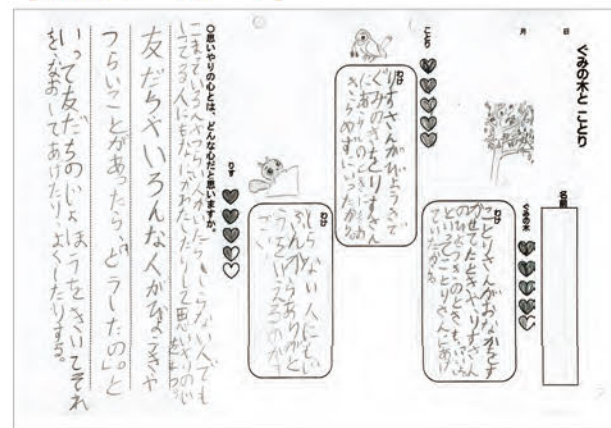 ぐみの木と ことり
月　日
名前
ぐみの木
わけ
ことりさんがおなかをす
かせてたときや、りすさん
のびょうきのときも、いいよ
といってことりさんにあげ
ていたから
ことり
わけ
りすさんがびょうきで
ぐみのきとりすさん
にあらしのときにもあ
きらめずにいったから。
りす
わけ
しらない人にもじ
ぶんからありがと
うをいえるのがす
ごい
○思いやりの心とは、どんな心だと思いますか。
こまっている人やつらい人がいたら、しらない人でも
しってる人にも
友だちやいろんな人がびょうきや
つらいことがあったら、「どうしたの」。と
いって友だちのじょうほうをきいてそれ
を、なおしてあげたり、よくしたりする。